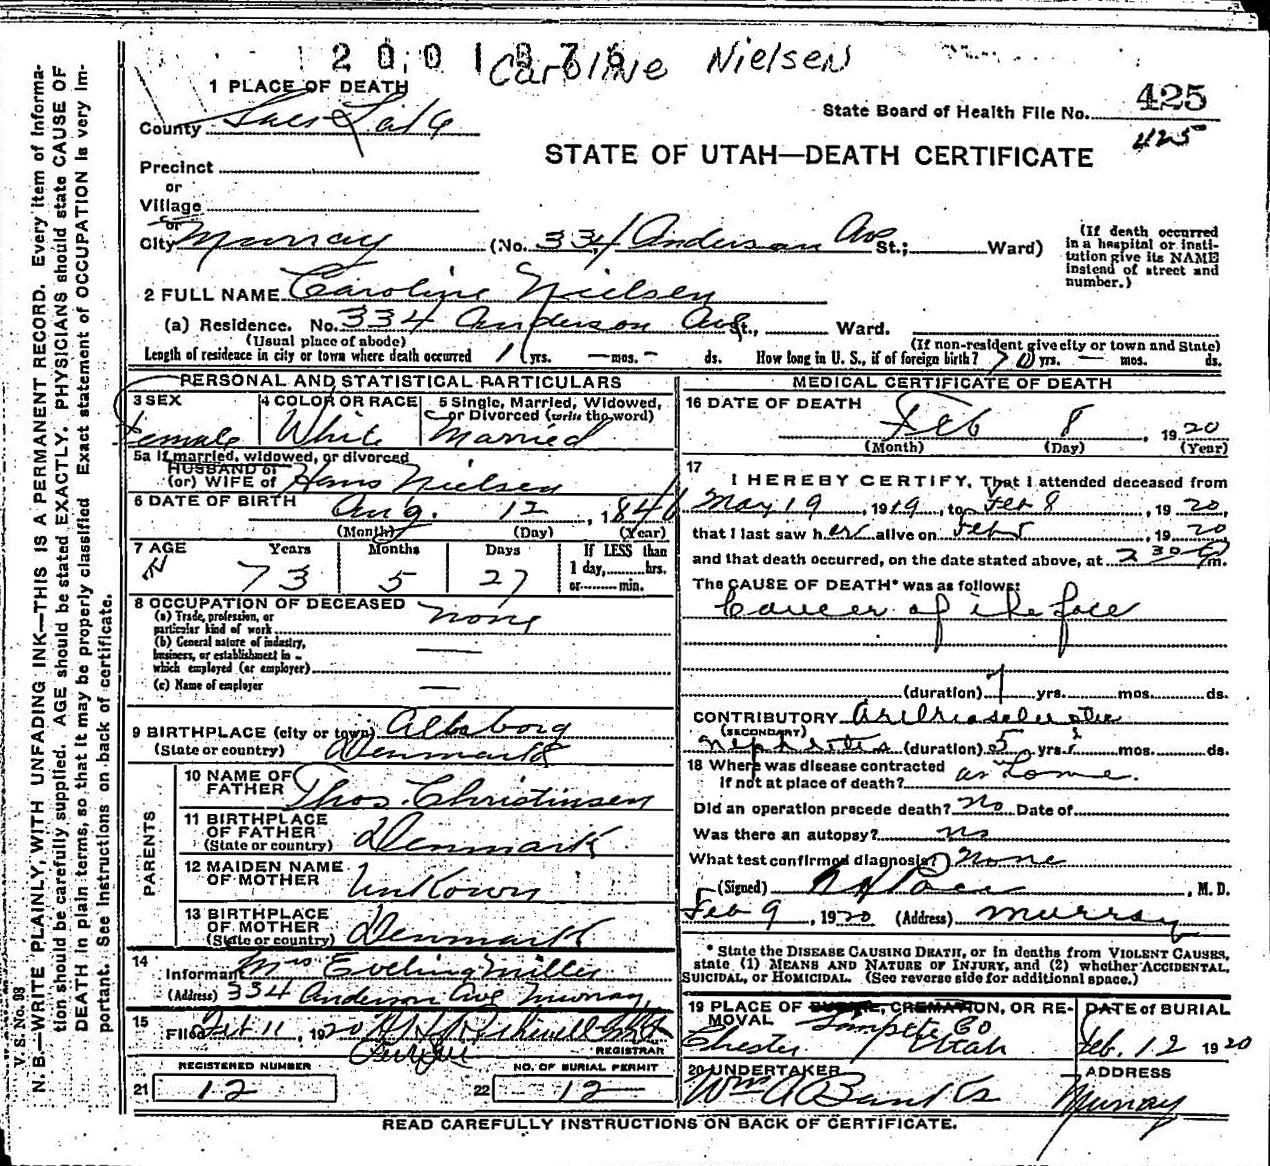 2001876
Caroline Nielsen
1 PLACE OF DEATH
State Board of Health File No. 425
425
County Salt Lake
STATE OF UTAH—DEATH CERTIFICATE
Precinct
or
Village
or
City Murray (No. 334 Anderson Ave St.; Ward)
(If death occurred in a hospital or insti-
tution give its NAME
instead of street and
number.)
2 FULL NAME Caroline Nielsen
(a) Residence. No. 334 Anderson Ave St., Ward.
(Usual place of abode) (If non-resident give city or town and State)
Length of residence in city or town where death occurred 1 yrs. — mos. — ds. How long in U. S., if of foreign birth? 70 yrs. — mos. ds.
PERSONAL AND STATISTICAL PARTICULARS
3 SEX 4 COLOR OR RACE 5 Single, Married, Widowed,
or Divorced (write the word)
Female White Married
5a If married, widowed, or divorced
HUSBAND of
(or) WIFE of Hans Nielsen
6 DATE OF BIRTH Aug. 12, 1846
(Month) (Day) (Year)
7 AGE Years Months Days If LESS than
1 day, hrs.
or min.
73 5 27
8 OCCUPATION OF DECEASED
(a) Trade, profession, or
particular kind of work None
(b) General nature of industry,
business, or establishment in
which employed (or employer) —
(c) Name of employer —
9 BIRTHPLACE (city or town) Albsborg
(State or country) Denmark
PARENTS
10 NAME OF
FATHER Thos. Christinsen
11 BIRTHPLACE
OF FATHER
(State or country) Denmark
12 MAIDEN NAME
OF MOTHER Unkown
13 BIRTHPLACE
OF MOTHER
(State or country) Denmark
14
Informant Mrs Eveling Miller
(Address) 334 Anderson Ave Murray,
15
Filed Feb 11, 1920
REGISTRAR
REGISTERED NUMBER NO. OF BURIAL PERMIT
21 12 22 12
MEDICAL CERTIFICATE OF DEATH
16 DATE OF DEATH
Feb 8, 1920
(Month) (Day) (Year)
17
I HEREBY CERTIFY, That I attended deceased from
May 19, 1919, to Feb 8, 1920,
that I last saw her alive on Feb 5, 1920
and that death occurred, on the date stated above, at 2 30 P m.
The CAUSE OF DEATH* was as follows:
Cancer of the face
(duration) 1 yrs. mos. ds.
CONTRIBUTORY
(SECONDARY)
Nephritis (duration) 5 yrs. mos. ds.
18 Where was disease contracted
if not at place of death? at home.
Did an operation precede death? No Date of
Was there an autopsy? no
What test confirmed diagnosis? None
(Signed) , M. D.
Feb 9, 1920 (Address) Murray
* State the DISEASE CAUSING DEATH, or in deaths from VIOLENT CAUSES,
state (1) MEANS AND NATURE OF INJURY, and (2) whether ACCIDENTAL,
SUICIDAL, or HOMICIDAL. (See reverse side for additional space.)
19 PLACE OF BURIAL, CREMATION, OR RE-
MOVAL
Chester Sanpete Co Utah
DATE of BURIAL
Feb. 12 1920
20 UNDERTAKER ADDRESS
Wm A Banks Murray
READ CAREFULLY INSTRUCTIONS ON BACK OF CERTIFICATE.
V. S. No. 98
N. B.—WRITE PLAINLY, WITH UNFADING INK—THIS IS A PERMANENT RECORD. Every item of informa-
tion should be carefully supplied. AGE should be stated EXACTLY. PHYSICIANS should state CAUSE OF
DEATH in plain terms, so that it may be properly classified. Exact statement of OCCUPATION is very im-
portant. See instructions on back of certificate.